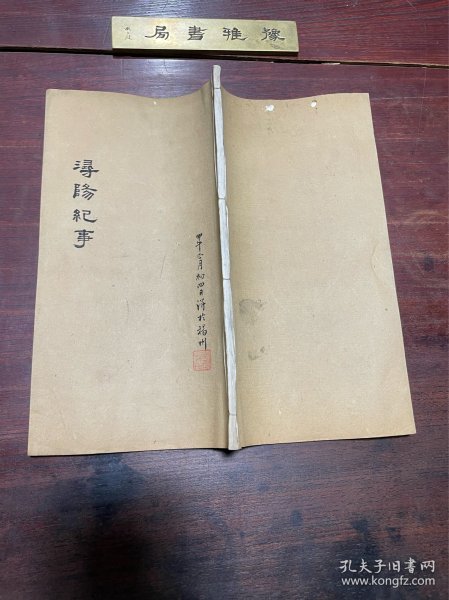 豫雅書局
潯陽紀事
甲午八月初四日得於福州
孔夫子旧书网
www.kongfz.com